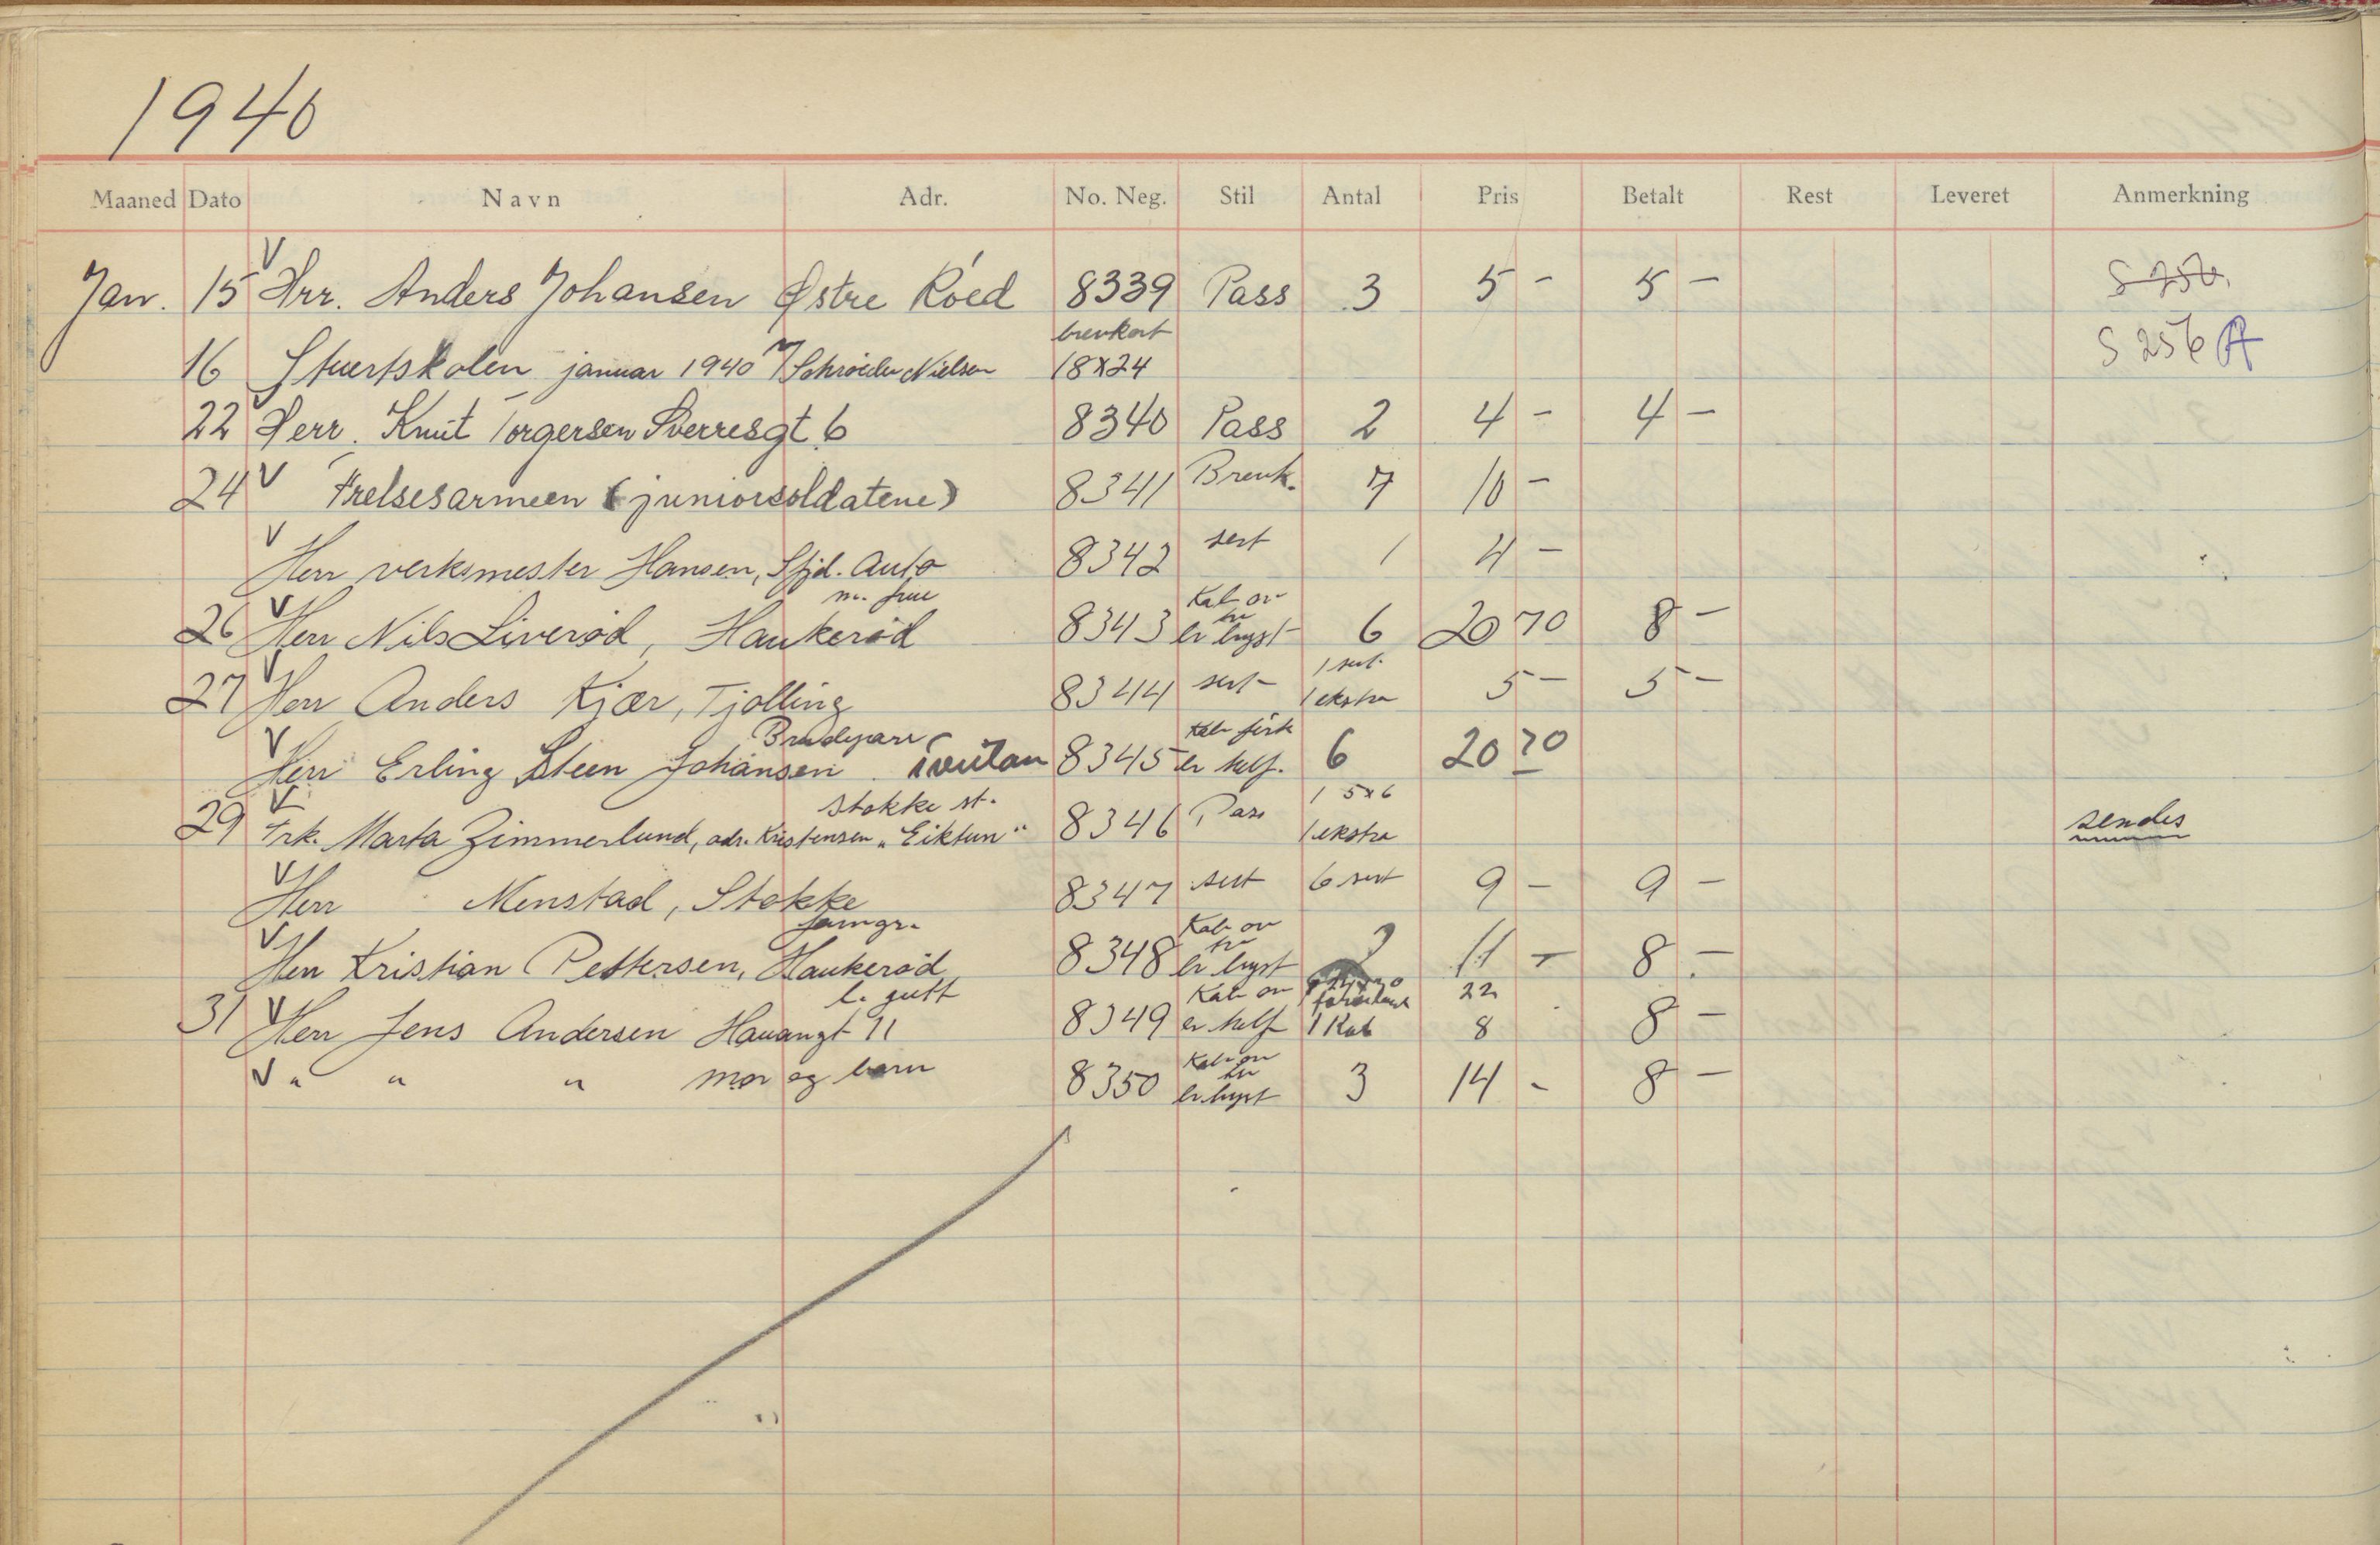 1940
Maaned Dato Navn Adr. No. Neg. Stil Antal Pris Betalt Rest Leveret Anmerkning
Jan. 15 V Hrr. Anders Johansen Østre Röed 8339 Pass 3 5 - 5 - S 256
brevkort
16 Stuertskolen januar 1940 Schröder Nielsen 18x24 S 256 A
22 V Herr. Knut Torgersen Sverresgt. 6 8340 Pass 2 4 - 4 -
24 V Frelsesarmeen (juniorsoldatene) 8341 Brevk. 7 10 -
V Herr verksmester Hansen, Sfjd. Auto 8342 sert 1 4 -
m. frue Kab or
26 V Herr Nils Liverød, Haukerød 8343 br bryst 6 20 70 8 -
1 sert.
27 V Herr Anders Kjær, Tjølling 8344 sert 1 ekstra 5 - 5 -
Brudepar Kab
V Herr Erling Steen Johansen 8345 br helf. 6 20 70
Stokke st. 1 5x6
29 V Frk. Marta Zimmerlund, adr. Kristensen "Eiktun" 8346 Pass 1 ekstra sendes
V Herr Menstad, Stokke 8347 sert 6 sert 9 - 9 -
famgr. Kab or
V Herr Kristian Pettersen, Haukerød 8348 br bryst 2 11 - 8 -
l. gutt Kab or 22
31 V Herr Jens Andersen Hauangt 11 8349 br helf 1 Kab 8 8 -
Kab or
V " " " mor og barn 8350 br. bryst 3 14 - 8 -